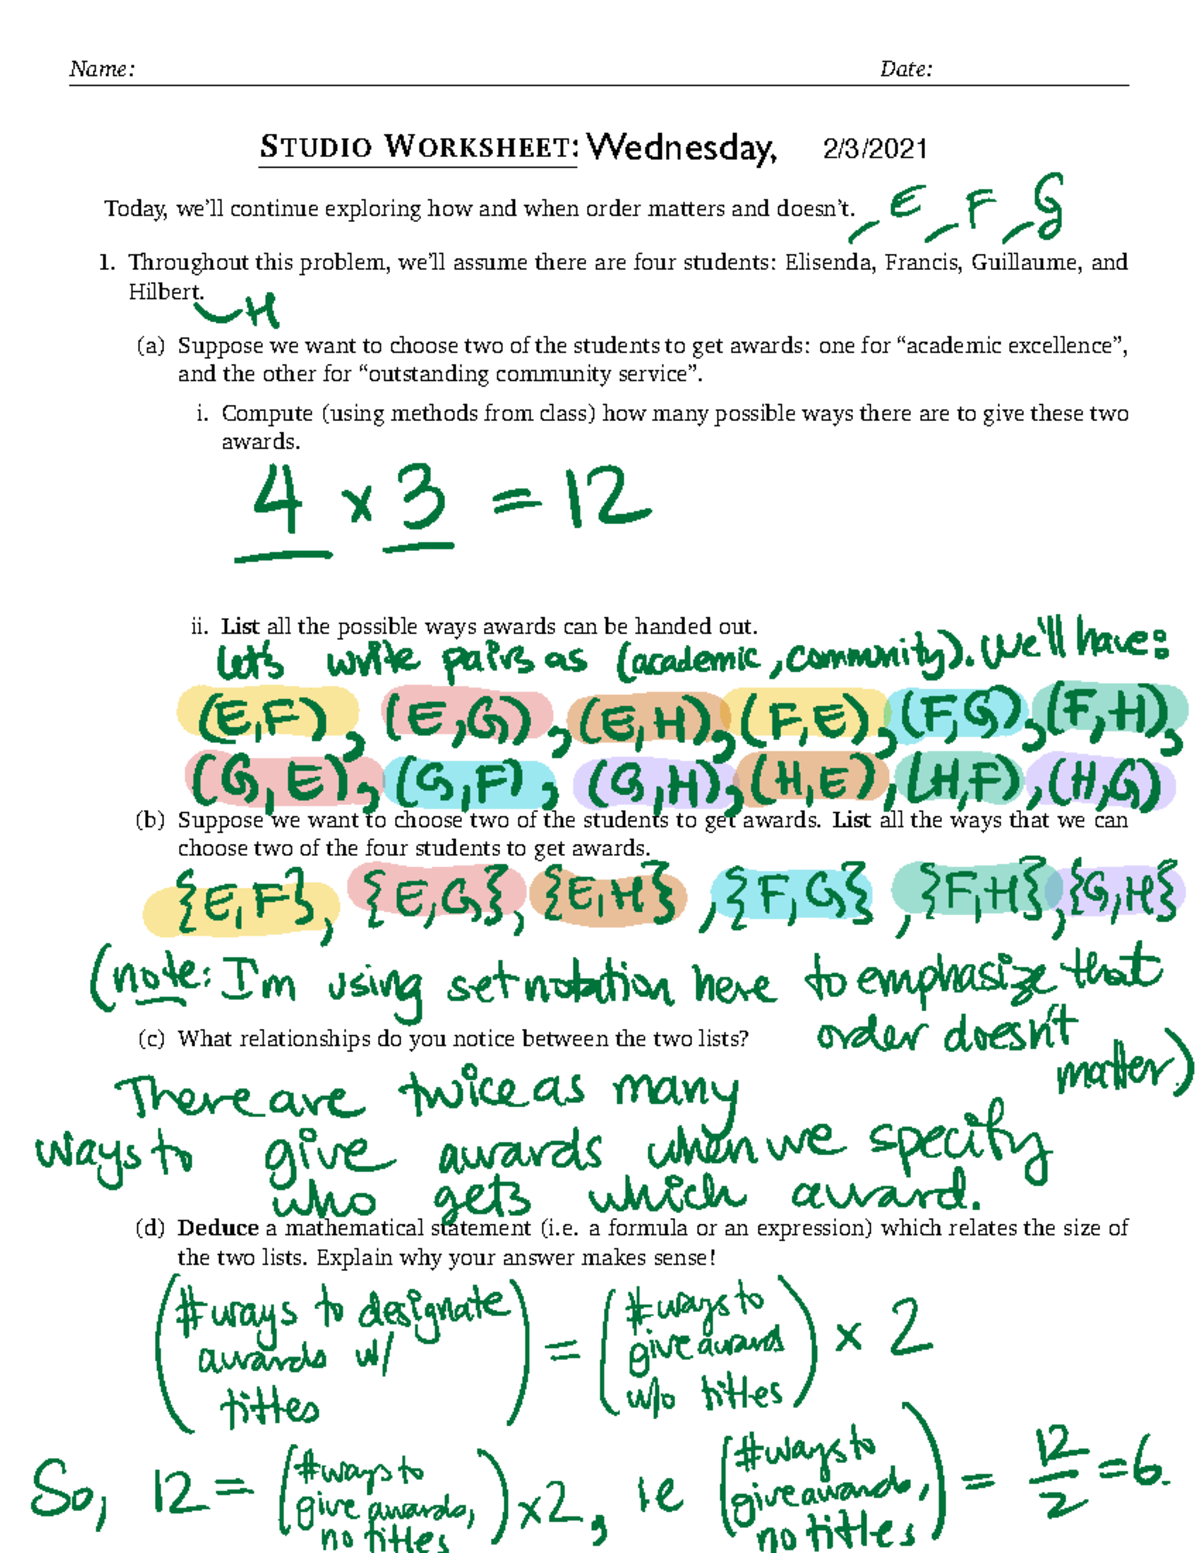 Name: Date:
STUDIO WORKSHEET: Wednesday, 2/3/2021
Today, we'll continue exploring how and when order matters and doesn't. E F G
1. Throughout this problem, we'll assume there are four students: Elisenda, Francis, Guillaume, and
Hilbert.
H
(a) Suppose we want to choose two of the students to get awards: one for "academic excellence",
and the other for "outstanding community service".
i. Compute (using methods from class) how many possible ways there are to give these two
awards.
4 x 3 = 12
ii. List all the possible ways awards can be handed out.
Let's write pairs as (academic, community). We'll have:
(E,F), (E,G), (E,H), (F,E), (F,G), (F,H),
(G,E), (G,F), (G,H), (H,E), (H,F), (H,G)
(b) Suppose we want to choose two of the students to get awards. List all the ways that we can
choose two of the four students to get awards.
{E,F}, {E,G}, {E,H}, {F,G}, {F,H}, {G,H}
(note: I'm using set notation here to emphasize that
order doesn't
matter.)
(c) What relationships do you notice between the two lists?
There are twice as many
ways to give awards when we specify
who gets which award.
(d) Deduce a mathematical statement (i.e. a formula or an expression) which relates the size of
the two lists. Explain why your answer makes sense!
(#ways to designate awards w/ titles) = (#ways to give award w/o titles) x 2
So, 12 = (#ways to give awards, no titles) x 2, ie (#ways to give awards, no titles) = 12/2 = 6.